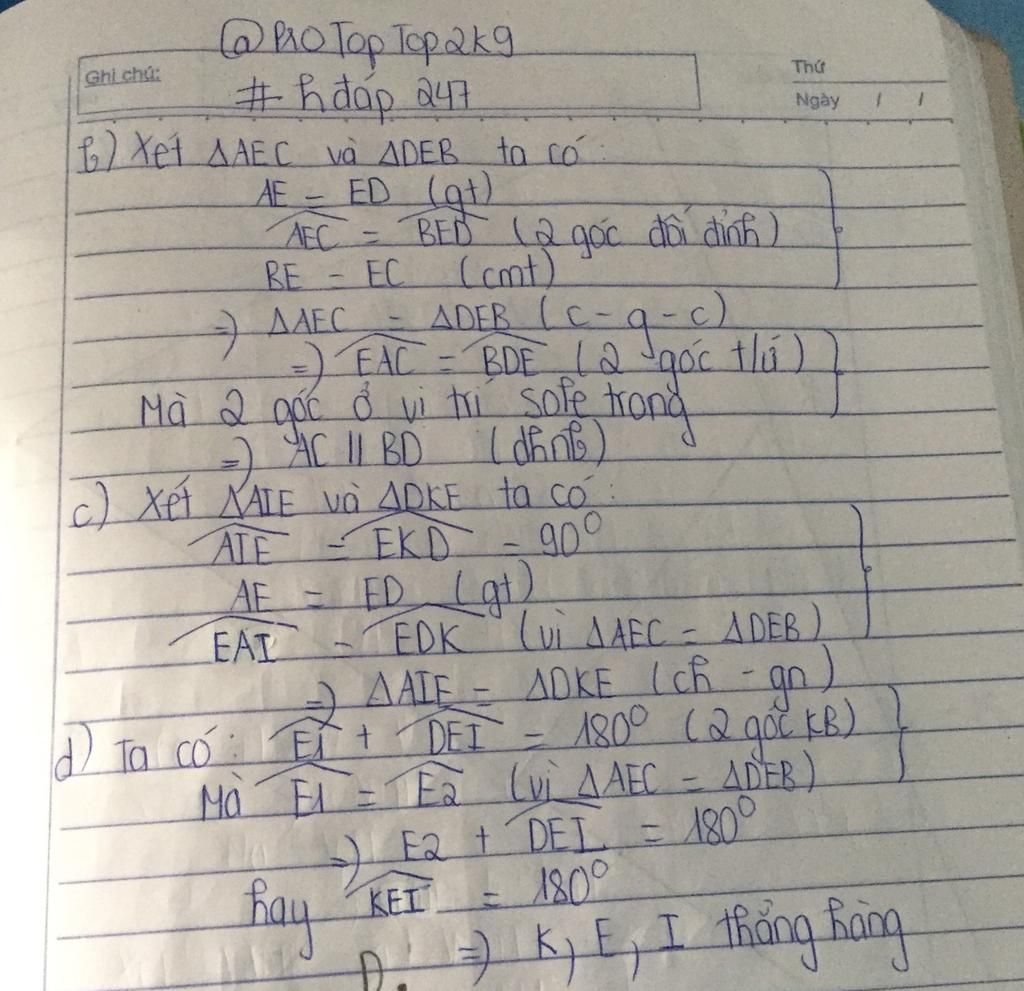 @ProTopTop2k9
Ghi chú:
# hđáp 247
Thứ
Ngày / /
b) Xét ΔAEC và ΔDEB ta có:
AE = ED (gt)
AEC = BED (2 góc đối đỉnh)
BE = EC (cmt)
=> ΔAEC = ΔDEB (c-g-c)
=> EAC = BDE (2 góc t/ứ)
Mà 2 góc ở vị trí sole trong
=> AC // BD (dhnb)
c) Xét ΔAIE và ΔDKE ta có:
AIE = EKD = 90°
AE = ED (gt)
EAI = EDK (vì ΔAEC = ΔDEB)
=> ΔAIE = ΔDKE (ch - gn)
d) Ta có: E1 + DEI = 180° (2 góc KB)
Mà E1 = E2 (vì ΔAEC = ΔDEB)
=> E2 + DEI = 180°
hay KEI = 180°
=> K, E, I thẳng hàng
D.